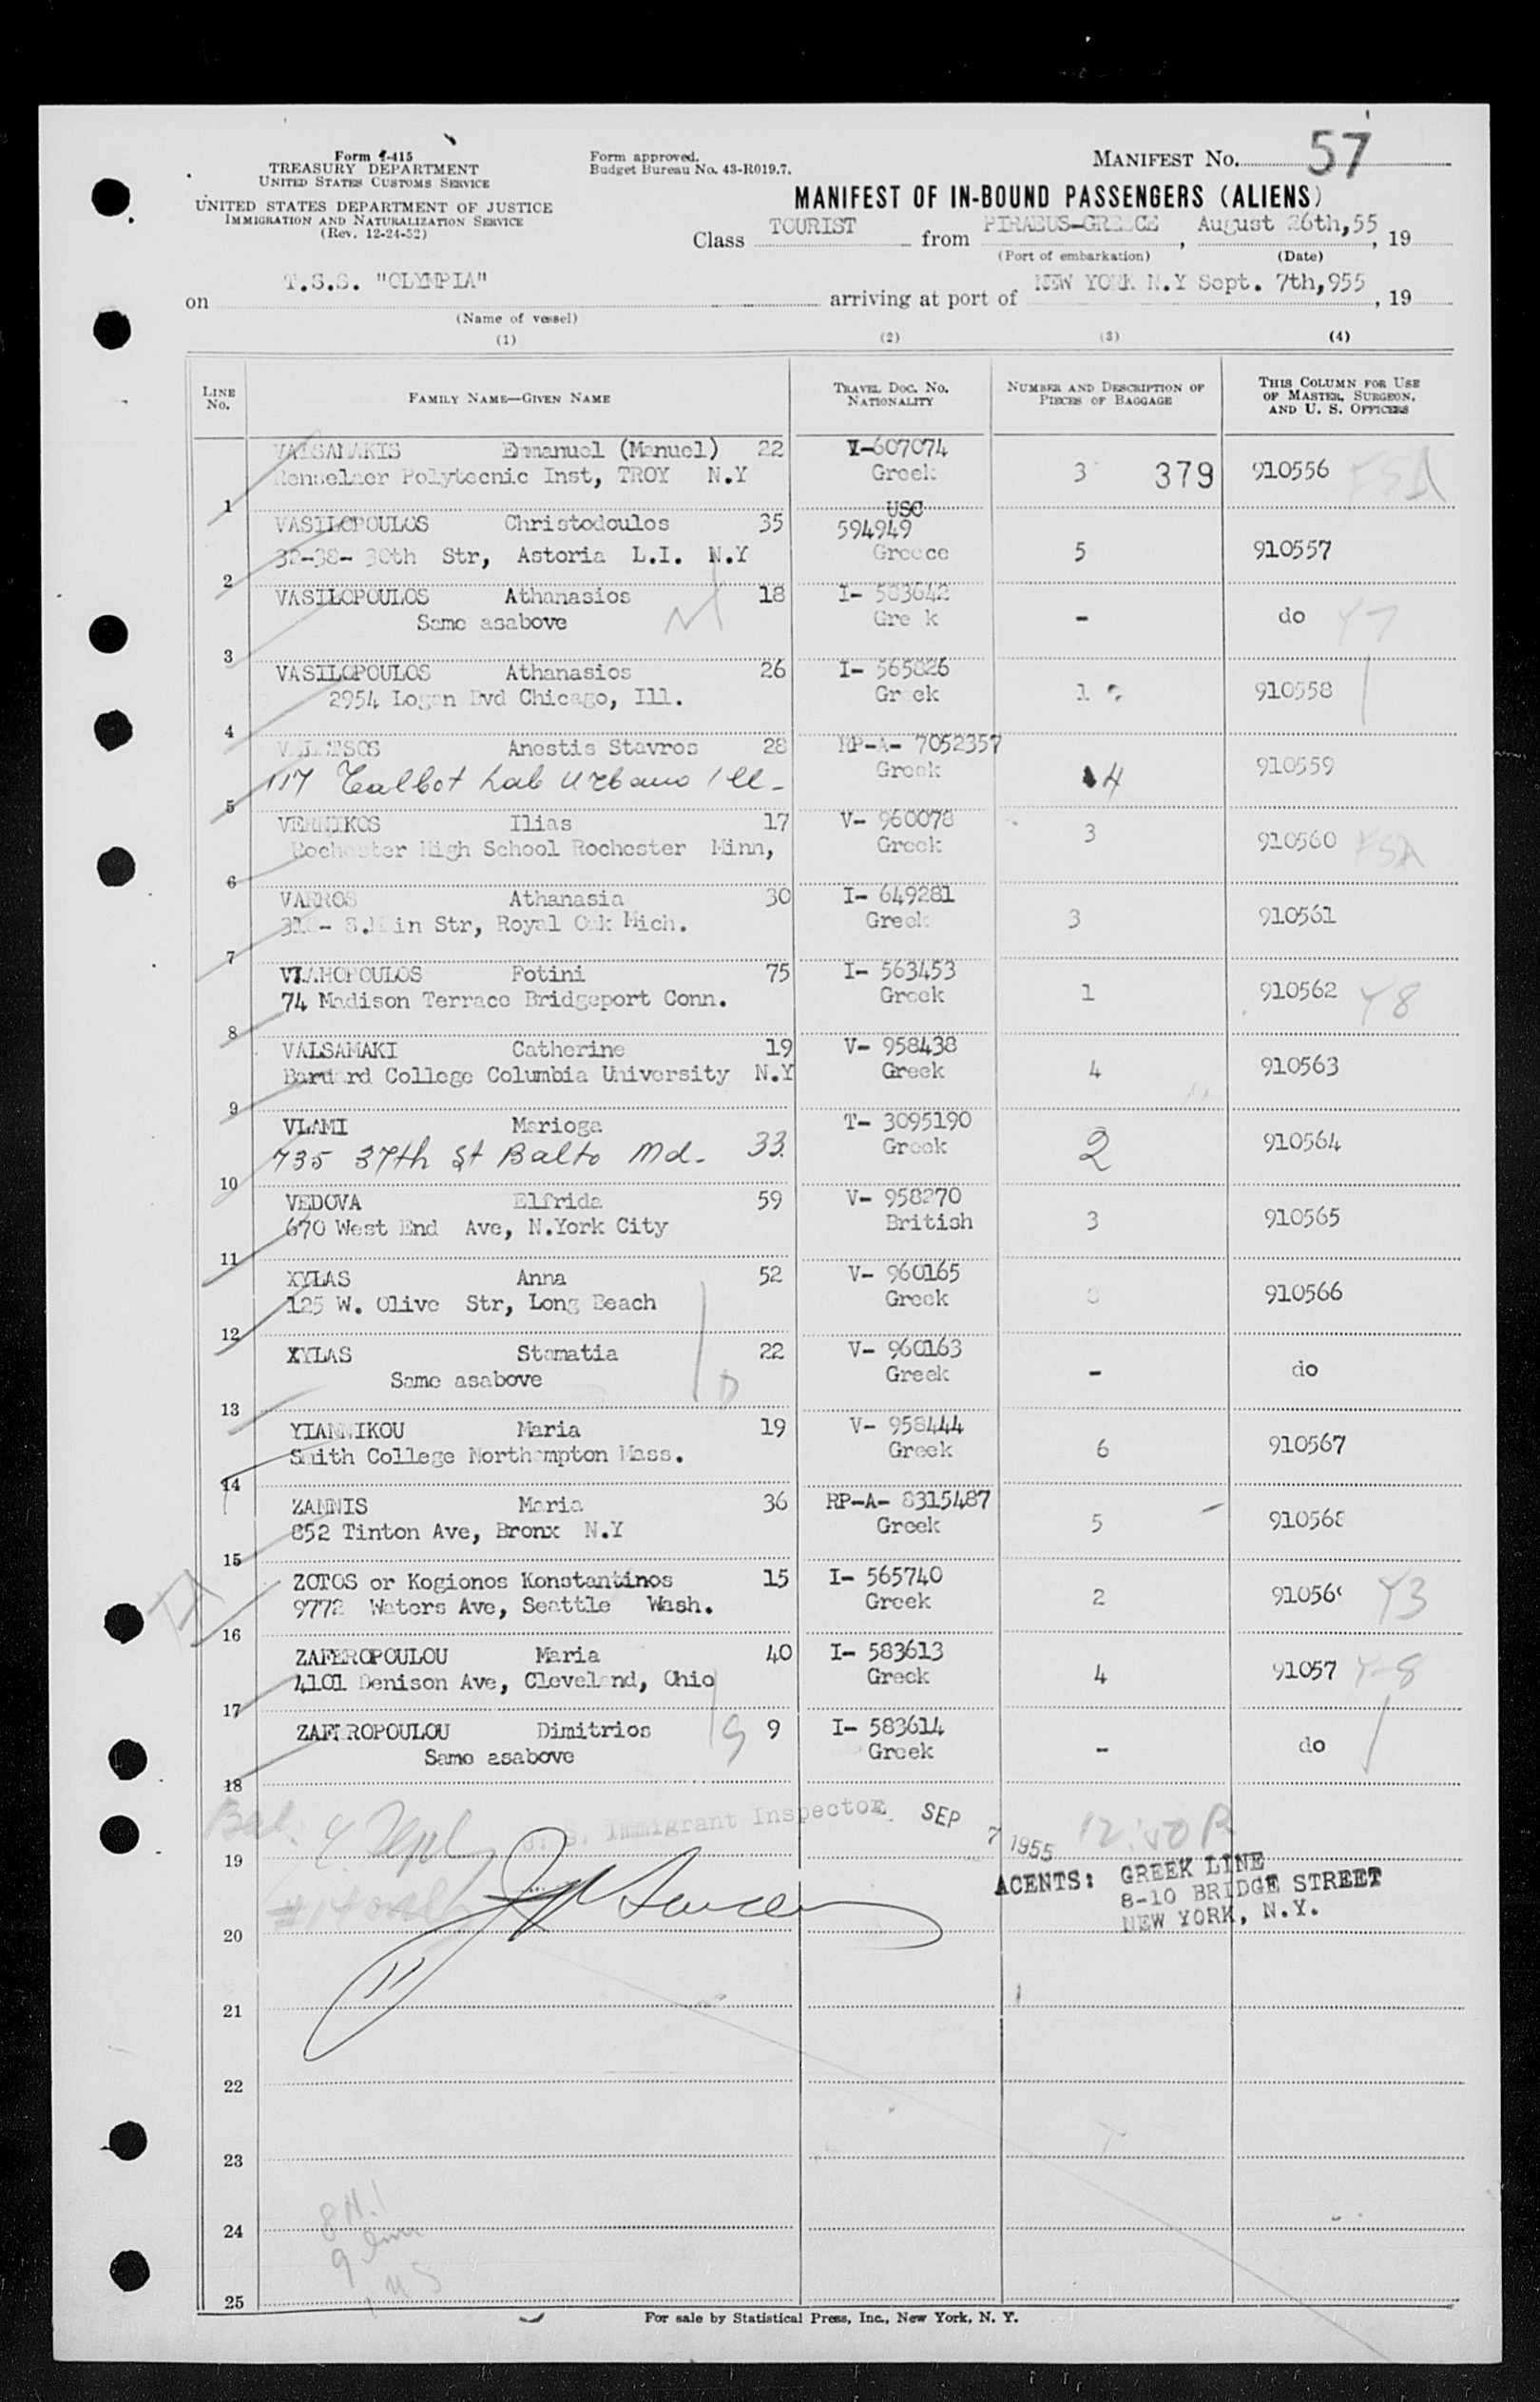 Form I-415
TREASURY DEPARTMENT
UNITED STATES CUSTOMS SERVICE
UNITED STATES DEPARTMENT OF JUSTICE
IMMIGRATION AND NATURALIZATION SERVICE
(Rev. 12-24-52)
Form approved.
Budget Bureau No. 43-R019.7.
MANIFEST No. 57
MANIFEST OF IN-BOUND PASSENGERS (ALIENS)
Class TOURIST from PIRAEUS-GREECE, August 26th,55, 19
(Port of embarkation) (Date)
on T.S.S. "OLYMPIA" arriving at port of NEW YORK N.Y Sept. 7th,955, 19
(Name of vessel)
(1) (2) (3) (4)
LINE No. FAMILY NAME—GIVEN NAME TRAVEL DOC. No. NATIONALITY NUMBER AND DESCRIPTION OF PIECES OF BAGGAGE THIS COLUMN FOR USE OF MASTER, SURGEON, AND U. S. OFFICERS
VALSAMAKIS Emmanuel (Manuel) 22 V-607074
Renselaer Polytecnic Inst, TROY N.Y Greek 3 379 910556 FSA
1
USC
VASILOPOULOS Christodoulos 35 594949
32-38- 30th Str, Astoria L.I. N.Y Greece 5 910557
2
VASILOPOULOS Athanasios 18 I- 583642
Same asabove Gre k - do Y7
3
VASILOPOULOS Athanasios 26 I- 565826
2954 Logan Bvd Chicago, Ill. Gr ek 1 910558
4
Anestis Stavros 28 RP-A- 7052357
117 Talbot Lab Urbana Ill- Greek 4 910559
5
VERNIKOS Ilias 17 V- 960078
Rochester High School Rochester Minn, Greek 3 910560 FSA
6
VARROS Athanasia 30 I- 649281
318- S.Main Str, Royal Oak Mich. Greek 3 910561
7
VLAHOPOULOS Fotini 75 I- 563453
74 Madison Terrace Bridgeport Conn. Greek 1 910562 Y8
8
VALSAMAKI Catherine 19 V- 958438
Barnard College Columbia University N.Y Greek 4 910563
9
VLAMI Marioga T- 3095190
735 37th St Balto Md- 33. Greek 2 910564
10
VEDOVA Elfrida 59 V- 958270
670 West End Ave, N.York City British 3 910565
11
XYLAS Anna 52 V- 960165
125 W. Olive Str, Long Beach Greek 910566
12
XYLAS Stamatia 22 V- 960163
Same asabove Greek - do
13
YIANNIKOU Maria 19 V- 958444
Smith College Northampton Mass. Greek 6 910567
14
ZANNIS Maria 36 RP-A- 8315487
852 Tinton Ave, Bronx N.Y Greek 5 910568
15
ZOTOS or Kogionos Konstantinos 15 I- 565740
9772 Waters Ave, Seattle Wash. Greek 2 91056 Y3
16
ZAFEROPOULOU Maria 40 I- 583613
4101 Denison Ave, Cleveland, Ohio Greek 4 91057 Y-8
17
ZAFEROPOULOU Dimitrios 9 I- 583614
Same asabove Greek - do
18
U. S. Immigrant Inspector SEP 7 1955 12:50 P
19
AGENTS: GREEK LINE
8-10 BRIDGE STREET
NEW YORK, N.Y.
20
21
22
23
24
25
For sale by Statistical Press, Inc., New York, N. Y.